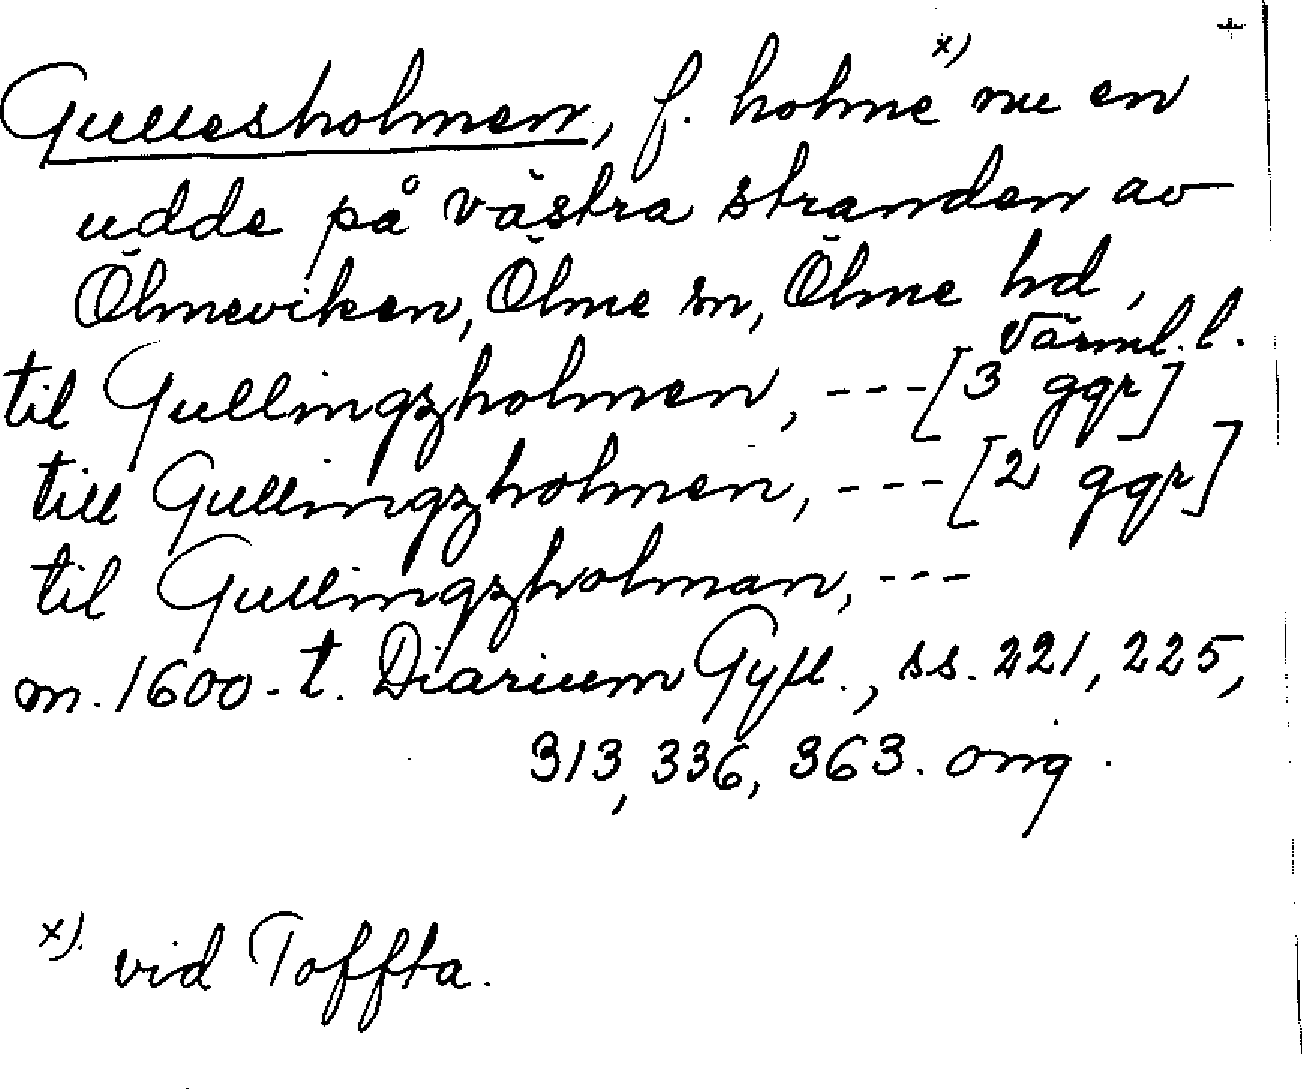 +
Gullesholmen, f. holme x) nu en
udde på västra stranden av
Ölmeviken, Ölme sn, Ölme hd,
Värml. l.
til Gullingzholmen, --- [3 ggr]
till Gullingzholmen, --- [2 ggr]
til Gullingzholman, ---
m. 1600-t. Diarium Gyll., ss. 221, 225,
313, 336, 363. orig.
x) vid Toffta.